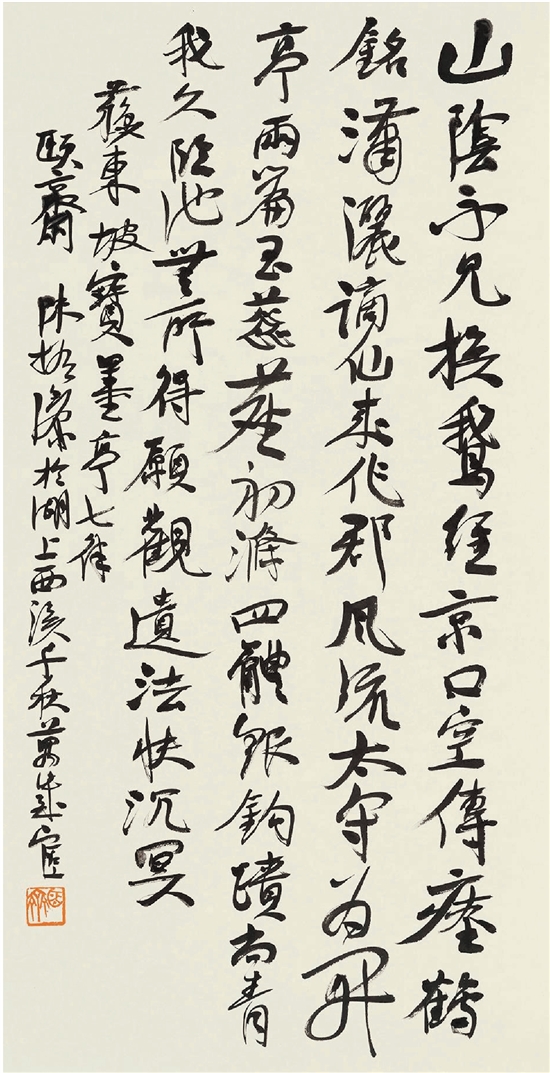 山陰不見換鵝經京口空傳瘞鶴
銘瀟灑謫仙來作郡風流太守為開
亭兩篇玉蕊塵初滌四體銀鉤蹟尚青
我久臨池無所得願觀遺法快沉冥
蘇東坡寶墨亭七律
頤齋 陳振濂於湖上西溪千秋萬歲室